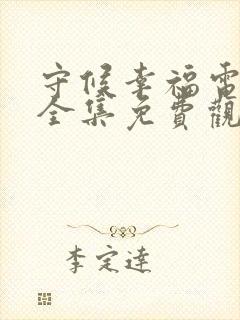 守候幸福電
全集免費觀
李定達